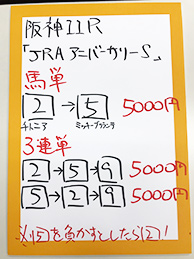 阪神11R
「JRAアニバーサリーS」
馬単
2 → 5 5000円
チトニア ミッキーブランシュ
3連単
2 → 5 → 9 5000円
5 → 2 → 9 5000円
※5を負かすとしたら2!